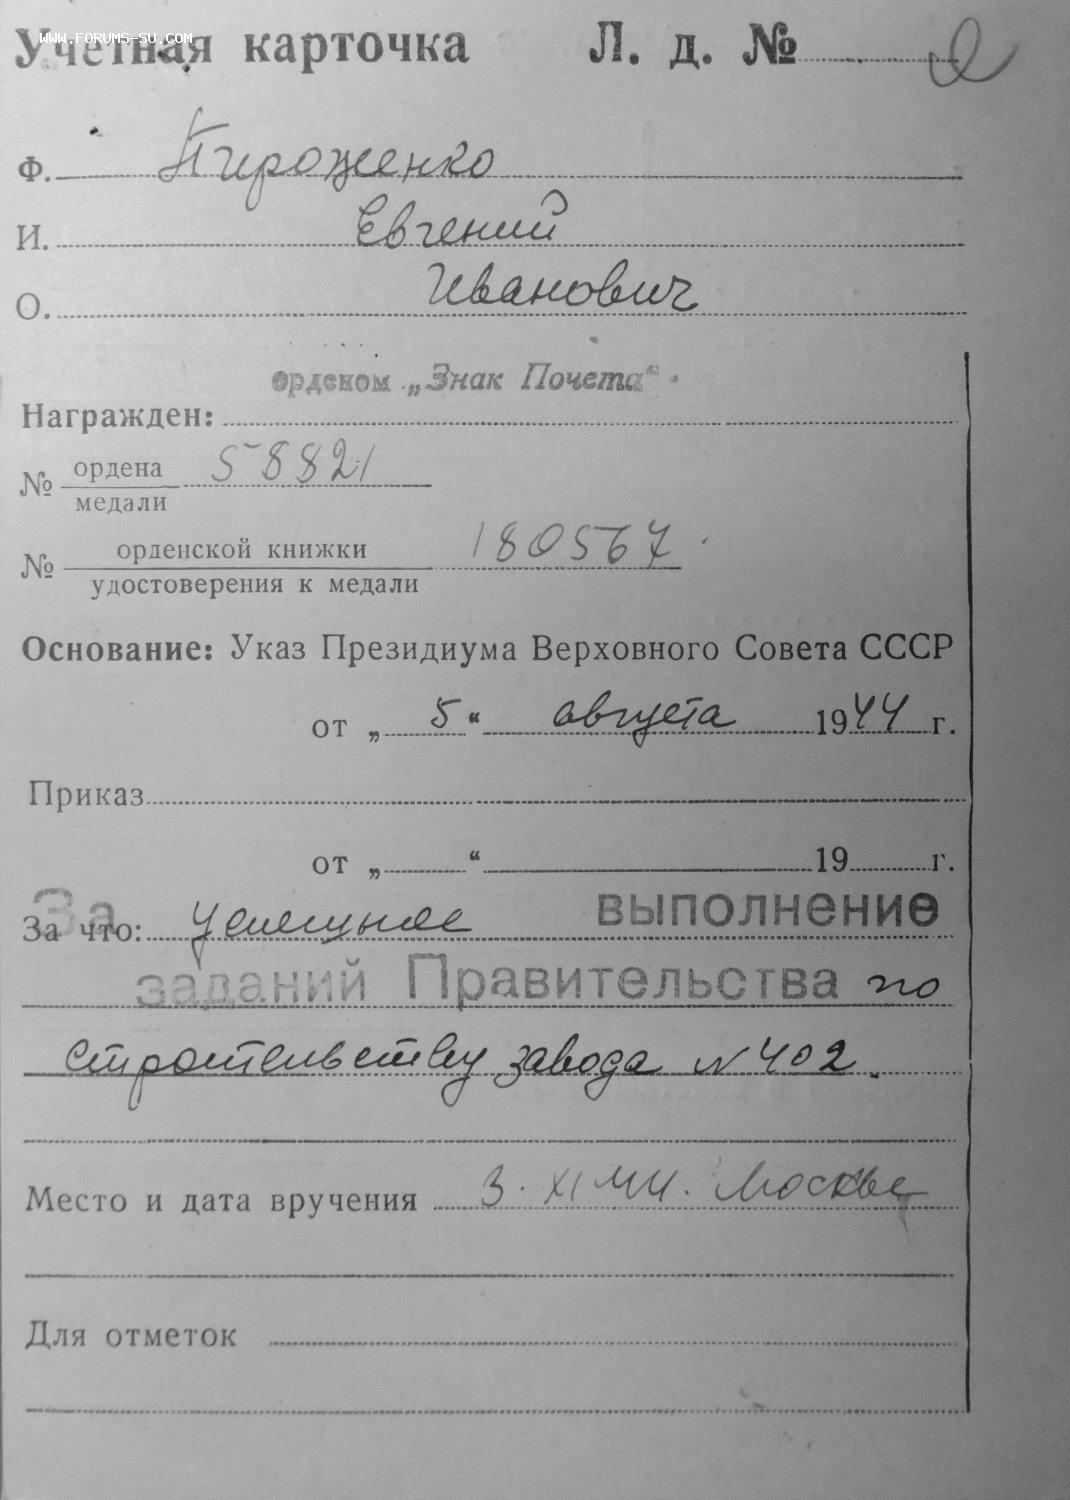 www.forums-su.com
Учетная карточка Л. д. №
Ф. Пироженко
И. Евгений
О. Иванович
орденом „Знак Почета“
Награжден:
№ ордена 58821
медали
№ орденской книжки 180567
удостоверения к медали
Основание: Указ Президиума Верховного Совета СССР
от „ 5 “ августа 1944 г.
Приказ
от „ “ 19 г.
За
За что: успешное выполнение
заданий Правительства по
строительству завода № 402.
Место и дата вручения 3. XI 44. Москва
Для отметок